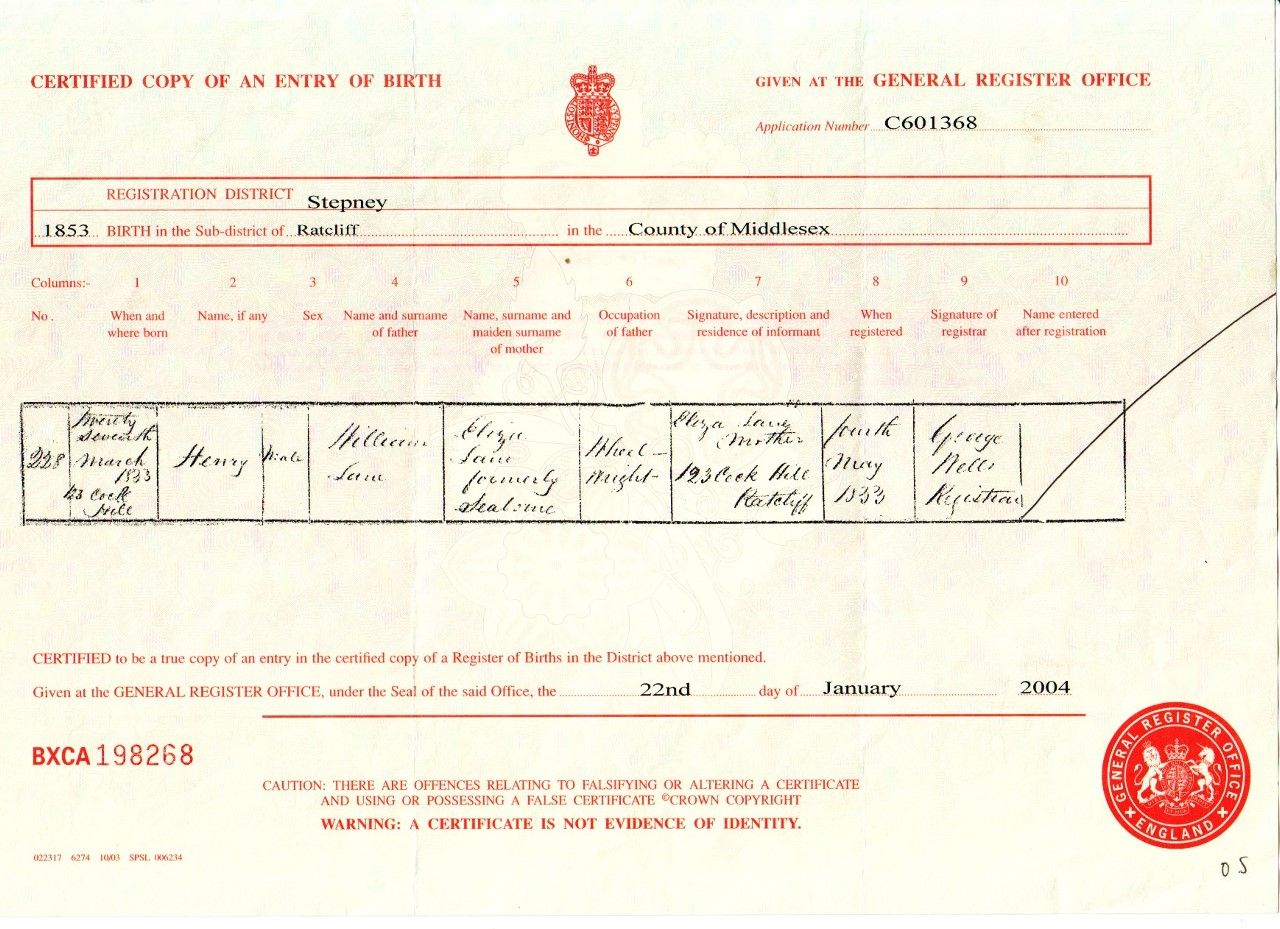 CERTIFIED COPY OF AN ENTRY OF BIRTH
GIVEN AT THE GENERAL REGISTER OFFICE
Application Number C601368
REGISTRATION DISTRICT Stepney
1853 BIRTH in the Sub-district of Ratcliff in the County of Middlesex
Columns:- 1 2 3 4 5 6 7 8 9 10
No. When and where born
Name, if any
Sex
Name and surname of father
Name, surname and maiden surname of mother
Occupation of father
Signature, description and residence of informant
When registered
Signature of registrar
Name entered after registration
228
Twenty
Seventh
March
1853
123 Cock
Hill
Henry
Male
William
Lane
Eliza
Lane
formerly
Wheel-
wright
Eliza Lane
Mother
123 Cock Hill
Ratcliff
fourth
May
1853
George
Wells
Registrar
CERTIFIED to be a true copy of an entry in the certified copy of a Register of Births in the District above mentioned.
Given at the GENERAL REGISTER OFFICE, under the Seal of the said Office, the 22nd day of January 2004
BXCA 198268
CAUTION: THERE ARE OFFENCES RELATING TO FALSIFYING OR ALTERING A CERTIFICATE
AND USING OR POSSESSING A FALSE CERTIFICATE ©CROWN COPYRIGHT
WARNING: A CERTIFICATE IS NOT EVIDENCE OF IDENTITY.
GENERAL REGISTER OFFICE
ENGLAND
022317 6274 10/03 SPSL 006234